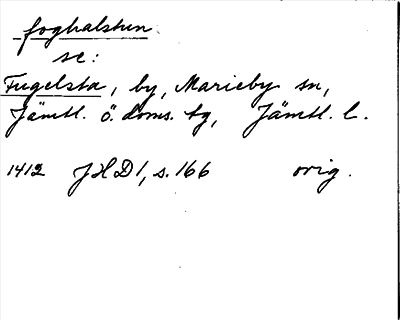 foghalstun
se:
Fugelsta, by, Marieby sn,
Jämtl. ö. doms. tg, Jämtl. l.
1412 JHD 1, s. 166 orig.